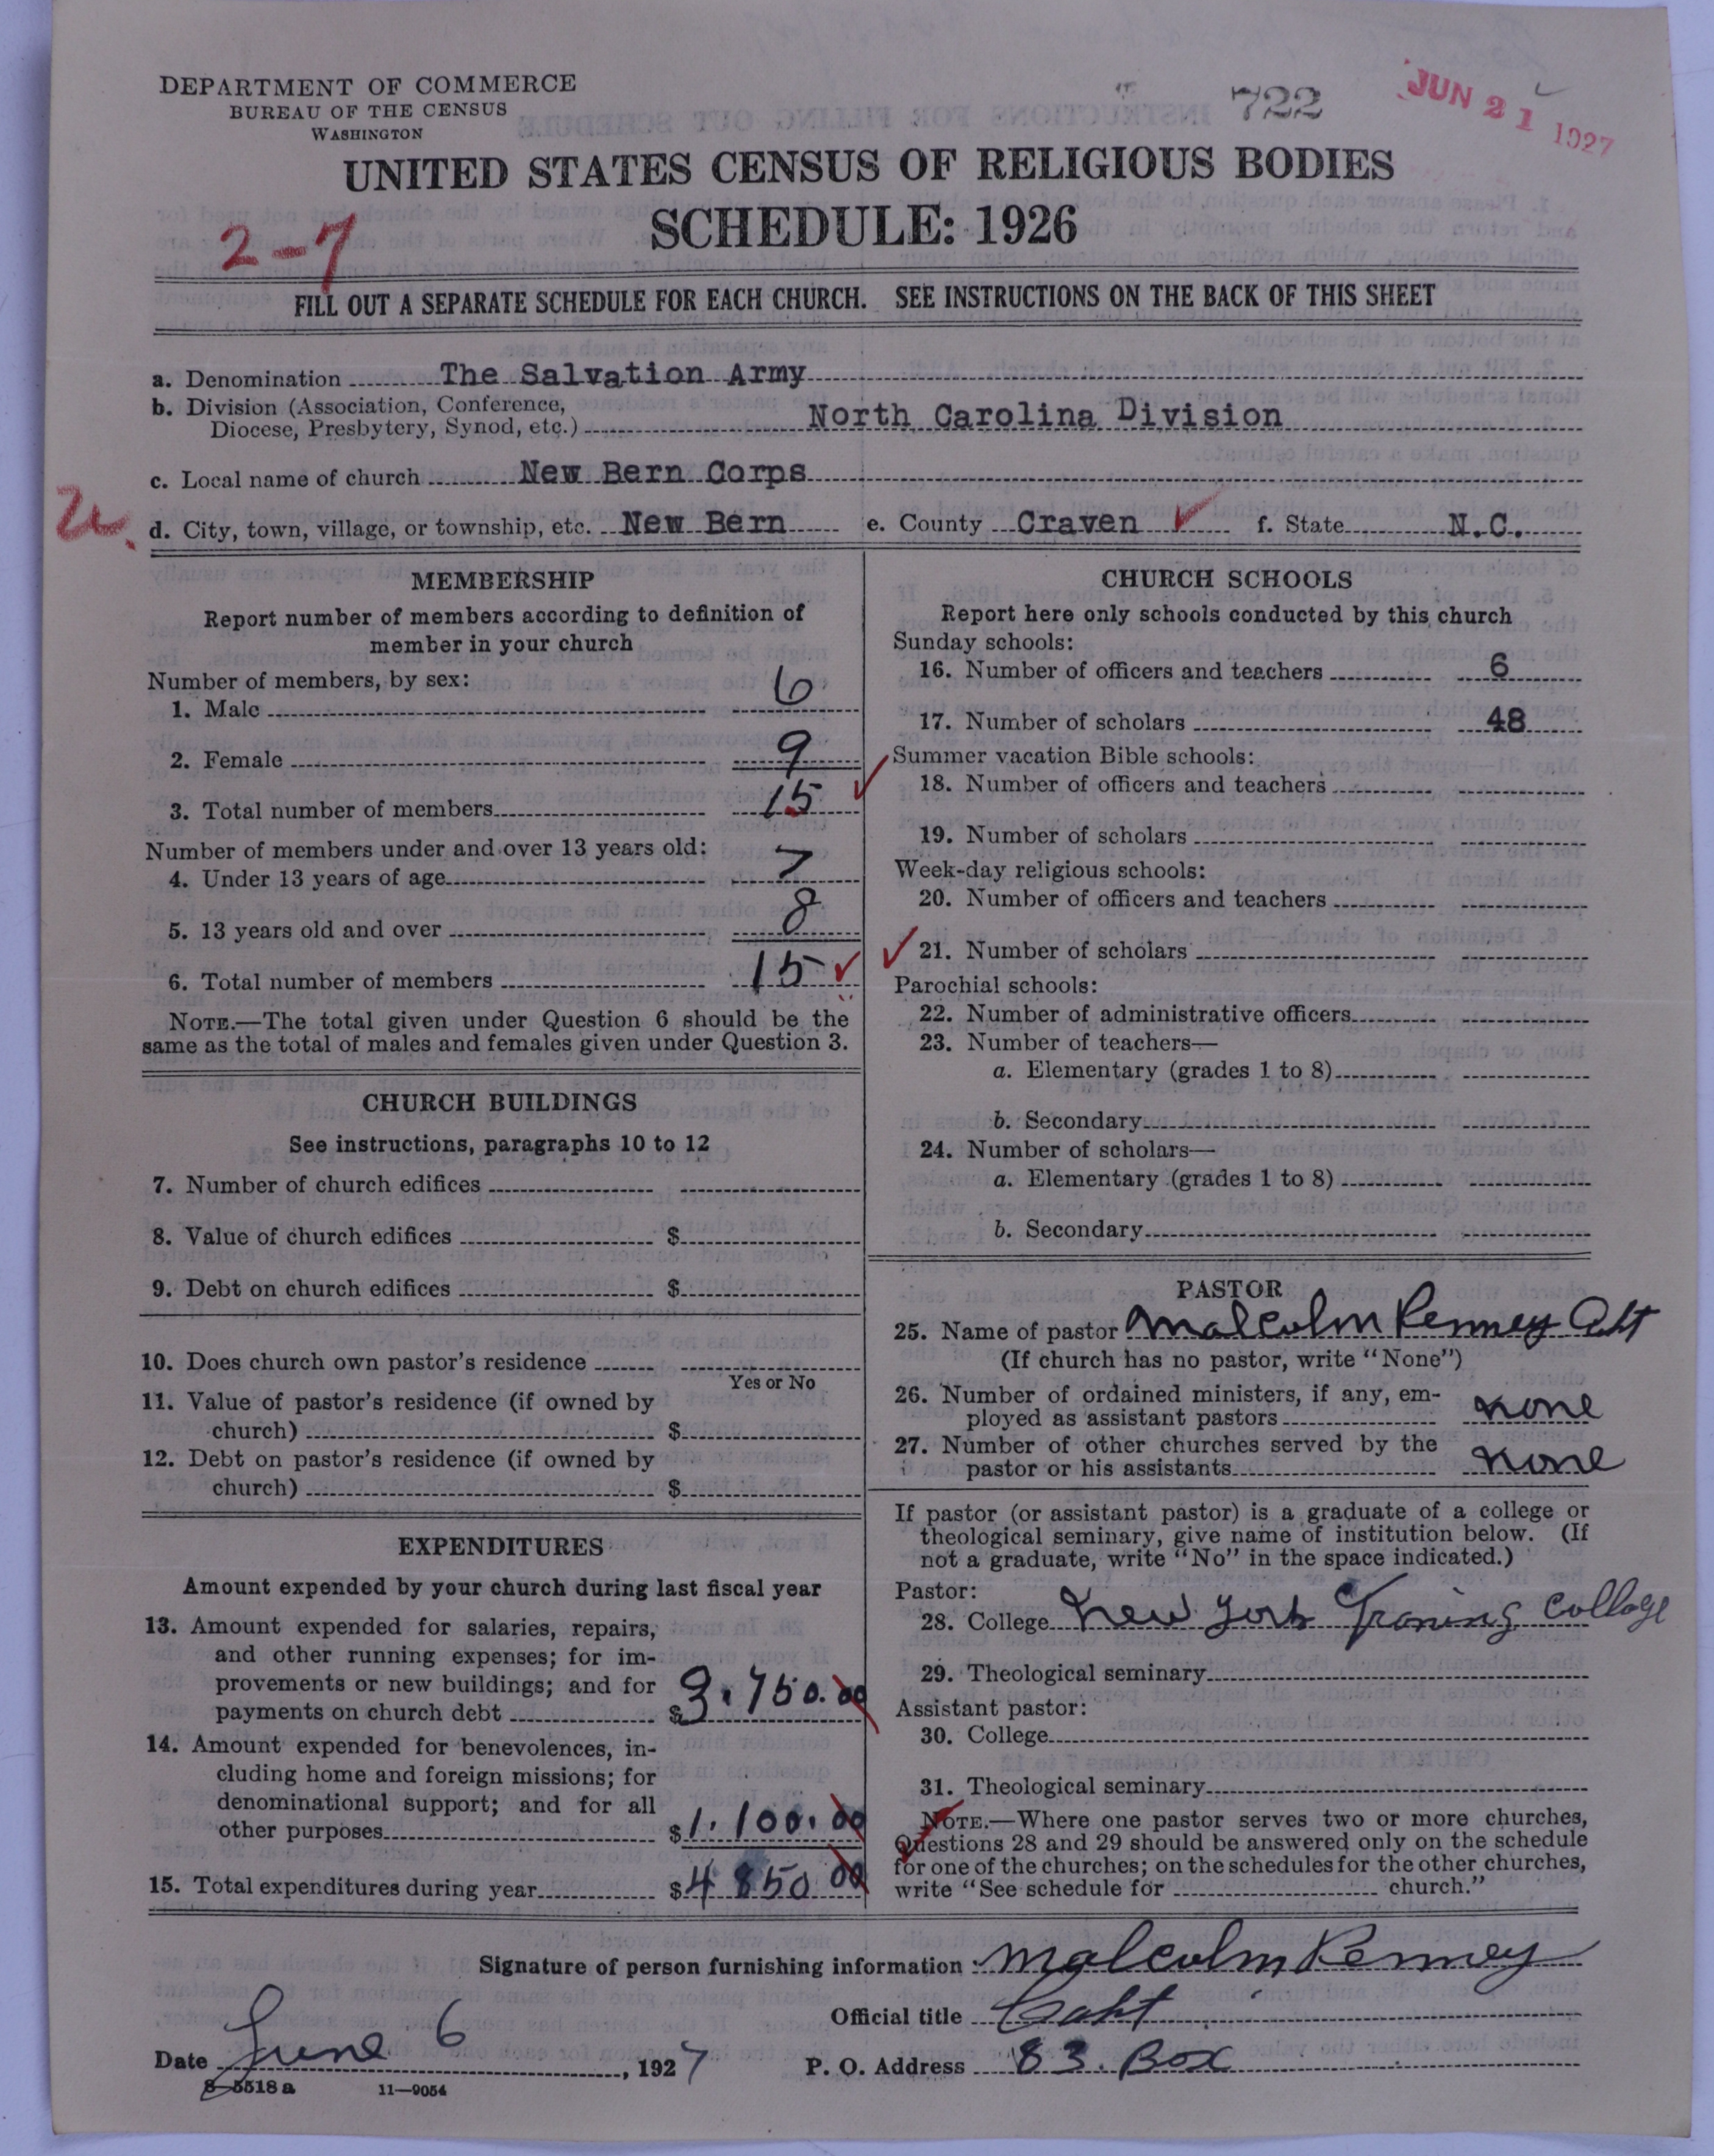 DEPARTMENT OF COMMERCE
BUREAU OF THE CENSUS
WASHINGTON
722
JUN 21 1927
UNITED STATES CENSUS OF RELIGIOUS BODIES
SCHEDULE: 1926
2-7
FILL OUT A SEPARATE SCHEDULE FOR EACH CHURCH. SEE INSTRUCTIONS ON THE BACK OF THIS SHEET
a. Denomination The Salvation Army
b. Division (Association, Conference,
Diocese, Presbytery, Synod, etc.) North Carolina Division
c. Local name of church New Bern Corps
d. City, town, village, or township, etc. New Bern e. County Craven f. State N.C.
MEMBERSHIP
Report number of members according to definition of
member in your church
Number of members, by sex:
1. Male 6
2. Female 9
3. Total number of members 15
Number of members under and over 13 years old:
4. Under 13 years of age 7
5. 13 years old and over 8
6. Total number of members 15
NOTE.—The total given under Question 6 should be the
same as the total of males and females given under Question 3.
CHURCH BUILDINGS
See instructions, paragraphs 10 to 12
7. Number of church edifices
8. Value of church edifices $
9. Debt on church edifices $
10. Does church own pastor's residence
Yes or No
11. Value of pastor's residence (if owned by
church) $
12. Debt on pastor's residence (if owned by
church) $
EXPENDITURES
Amount expended by your church during last fiscal year
13. Amount expended for salaries, repairs,
and other running expenses; for im-
provements or new buildings; and for
payments on church debt $3.750.00
14. Amount expended for benevolences, in-
cluding home and foreign missions; for
denominational support; and for all
other purposes $1.100.00
15. Total expenditures during year $4850 00
CHURCH SCHOOLS
Report here only schools conducted by this church
Sunday schools:
16. Number of officers and teachers 6
17. Number of scholars 48
Summer vacation Bible schools:
18. Number of officers and teachers
19. Number of scholars
Week-day religious schools:
20. Number of officers and teachers
21. Number of scholars
Parochial schools:
22. Number of administrative officers
23. Number of teachers—
a. Elementary (grades 1 to 8)
b. Secondary
24. Number of scholars—
a. Elementary (grades 1 to 8)
b. Secondary
PASTOR
25. Name of pastor Malcolm Penney
(If church has no pastor, write "None")
26. Number of ordained ministers, if any, em-
ployed as assistant pastors none
27. Number of other churches served by the
pastor or his assistants none
If pastor (or assistant pastor) is a graduate of a college or
theological seminary, give name of institution below. (If
not a graduate, write "No" in the space indicated.)
Pastor:
28. College New York Traning Collage
29. Theological seminary
Assistant pastor:
30. College
31. Theological seminary
NOTE.—Where one pastor serves two or more churches,
Questions 28 and 29 should be answered only on the schedule
for one of the churches; on the schedules for the other churches,
write "See schedule for church."
Signature of person furnishing information Malcolm Penney
Official title
Date June 6, 1927 P. O. Address 83. Box
8-5518 a 11-9054